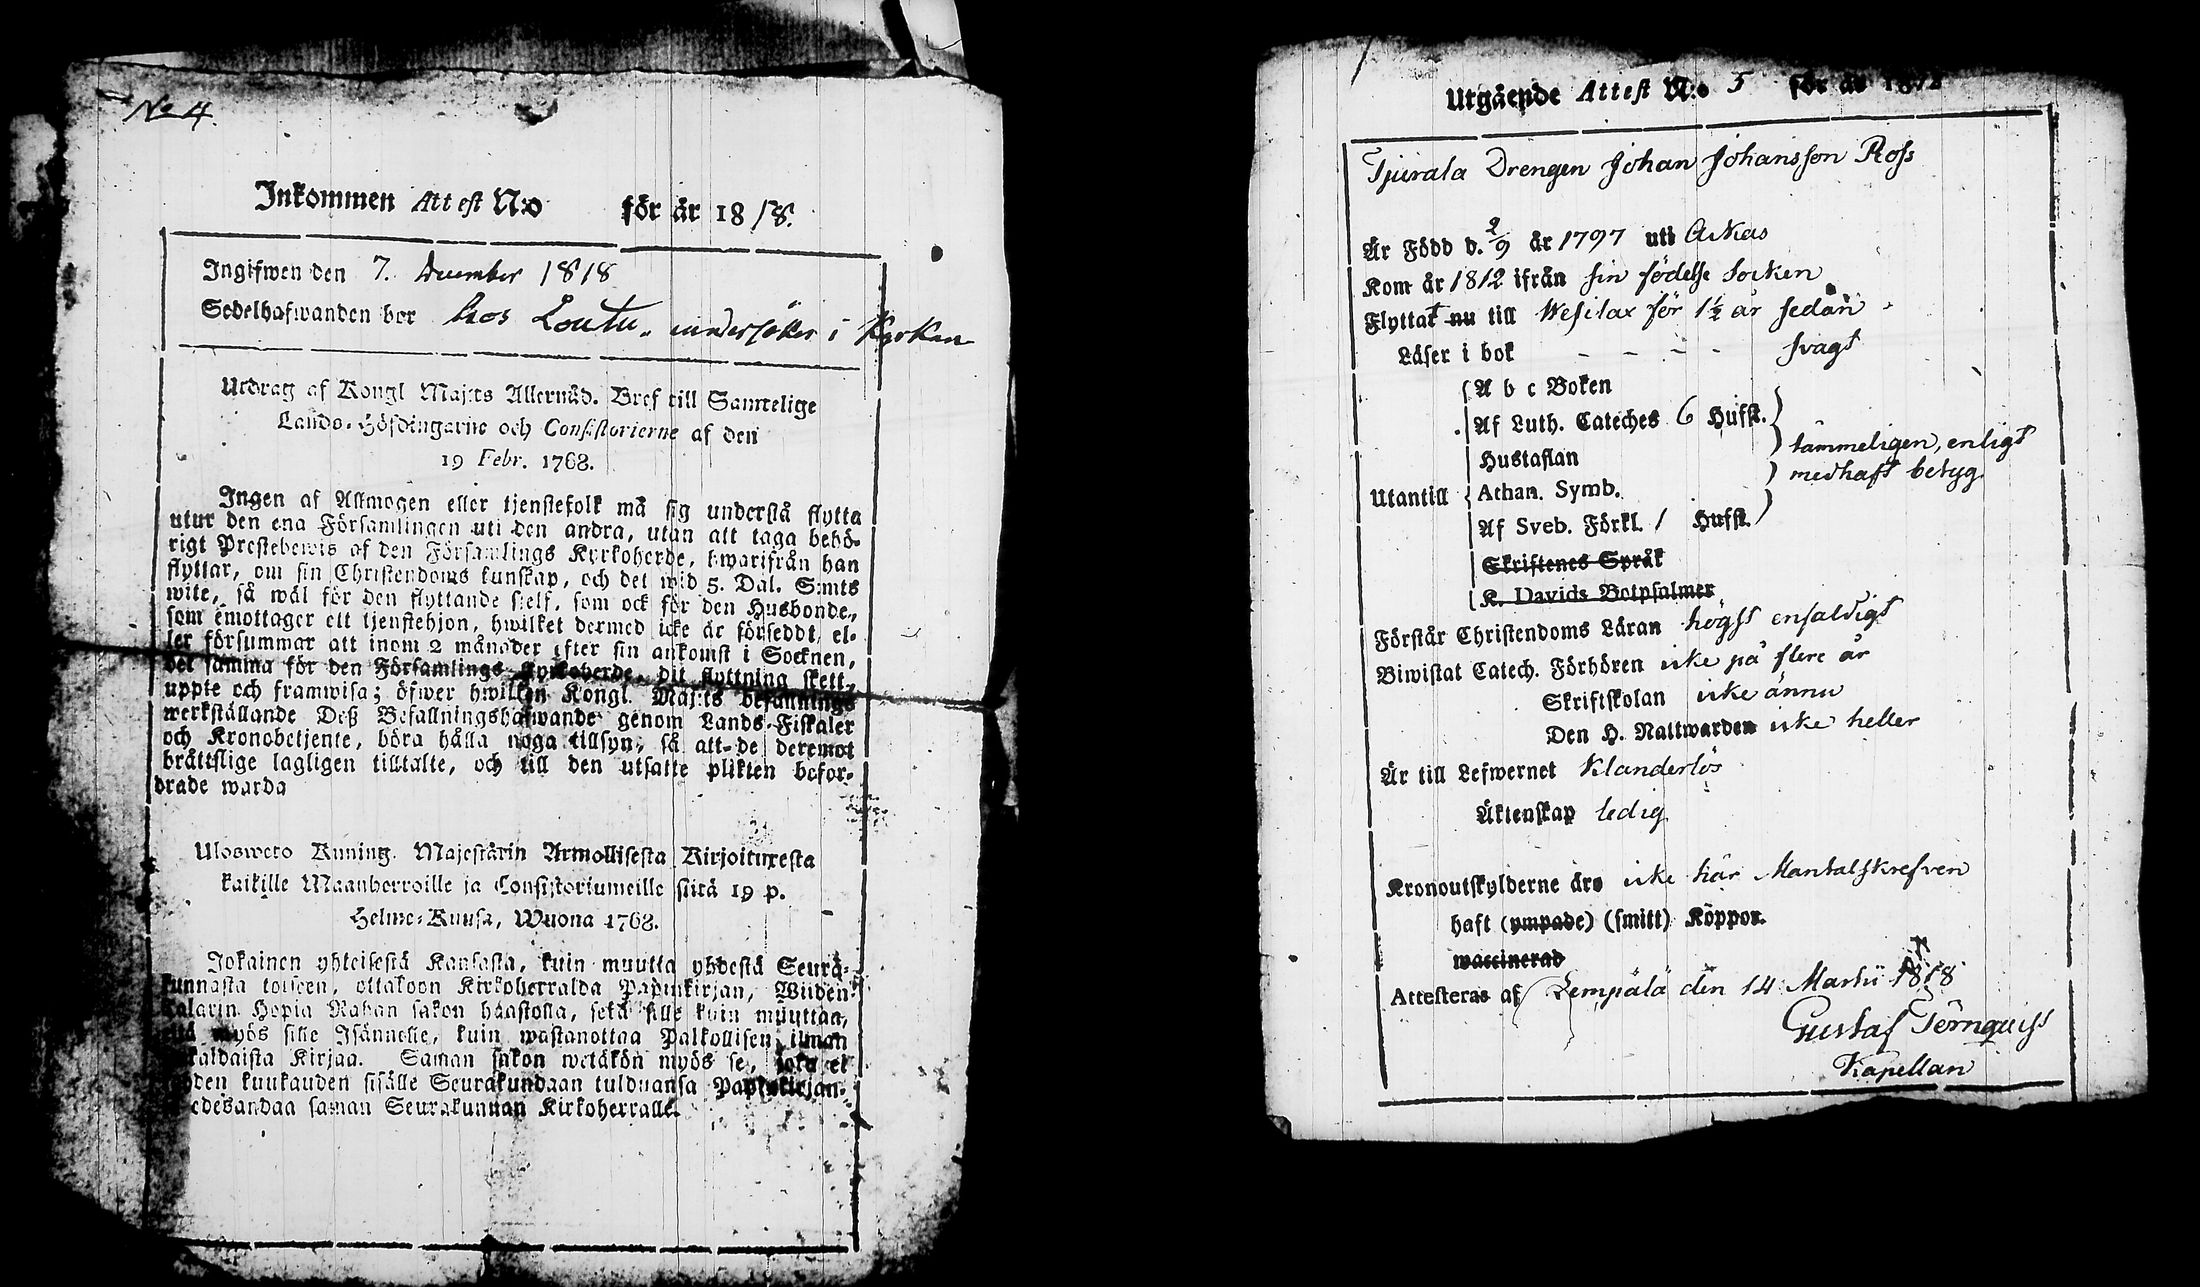 No 4
Inkommen Attest N:o för år 1818.
Ingifwen den 7. December 1818
Sedelhafwanden bor hos Loutu, undersökes i Kyrkan
Utdrag af Kongl Maj:ts Allernåd. Bref till Samtelige
Lands-Höfdingarne och Consistorierne af den
19 Febr. 1768.
Ingen af Allmogen eller tjenstefolk må sig understå flytta
utur den ena Församlingen uti den andra, utan att taga behö-
rigt Prestebewis af den Församlings Kyrkoherde, hwarifrån han
flyttar, om sin Christendoms kunskap, och det wid 5. Dal. S:mts
wite, så wäl för den flyttande sielf, som ock för den Husbonde,
som emottager ett tjenstehjon, hwilket dermed icke är försedt, el-
ler försummar att inom 2 månader efter sin ankomst i Socknen,
det samma för den Församlings Kyrkoherde, dit flyttning skett,
uppte och framwisa; öfwer hwilken Kongl. Maj:ts befallnings
werkställande Deß Befallningshafwande genom Lands-Fiskaler
och Kronobetjente, böra hålla noga tillsyn, så att de deremot
bråttslige lagligen tilltalte, och till den utsatte plikten befor-
drade warda
Uloswето Kuning. Majestätin Armollisesta Kirjoituxesta
kaikille Maanherroille ja Consistoriumeille siitä 19 p.
Helme-Kuusa, Wuona 1768.
Jokainen yhteisestä Kansasta, kuin muutta yhdestä Seura-
kunnasta toiseen, ottakoon Kirkoherralda Papinkirjan, Wiiden
Talarin Hopia Rahan sakon haastolla, sekä sille kuin muuttaa,
että myös sille Isännelle, kuin wastanottaa Palkollisen ilman
kaldaista Kirjaa. Saman sakon wetäkön myös se, joka ei
hden kuukauden sisälle Seurakundaan tulduansa Papinkirjan-
edesandaa saman Seurakunnan Kirkoherralle.
Utgående Attest N:o 5 för år 1812
Tjurala Drengen Johan Johansson Ross
Är Född d. 2/9 år 1797 uti Ackas
Kom år 1812 ifrån sin födelse socken
Flyttat nu till Wesilax för 1½ år sedan
Läser i bok - - - - svagt
A b c Boken
Af Luth. Cateches 6 Hufst.
Hustaflan
tämmeligen, enligt
medhaft betyg
Utantill Athan. Symb.
Af Sveb. Förkl. / Hufst.
Skriftenes Språk
K. Davids Botpsalmer
Förstår Christendoms Läran högst enfaldigt
Biwistat Catech. Förhören icke på flere år
Skriftskolan icke ännu
Den H. Nattwarden icke heller
Är till Lefwernet Klanderlös
Äktenskap ledig
Kronoutskylderne äro icke här Mantalskrefven
haft (ympade) (smitt) Koppor.
waccinerad
Attesteras af Lempälä den 14 Martii 1818
Gustaf Törnquist
Kapellan